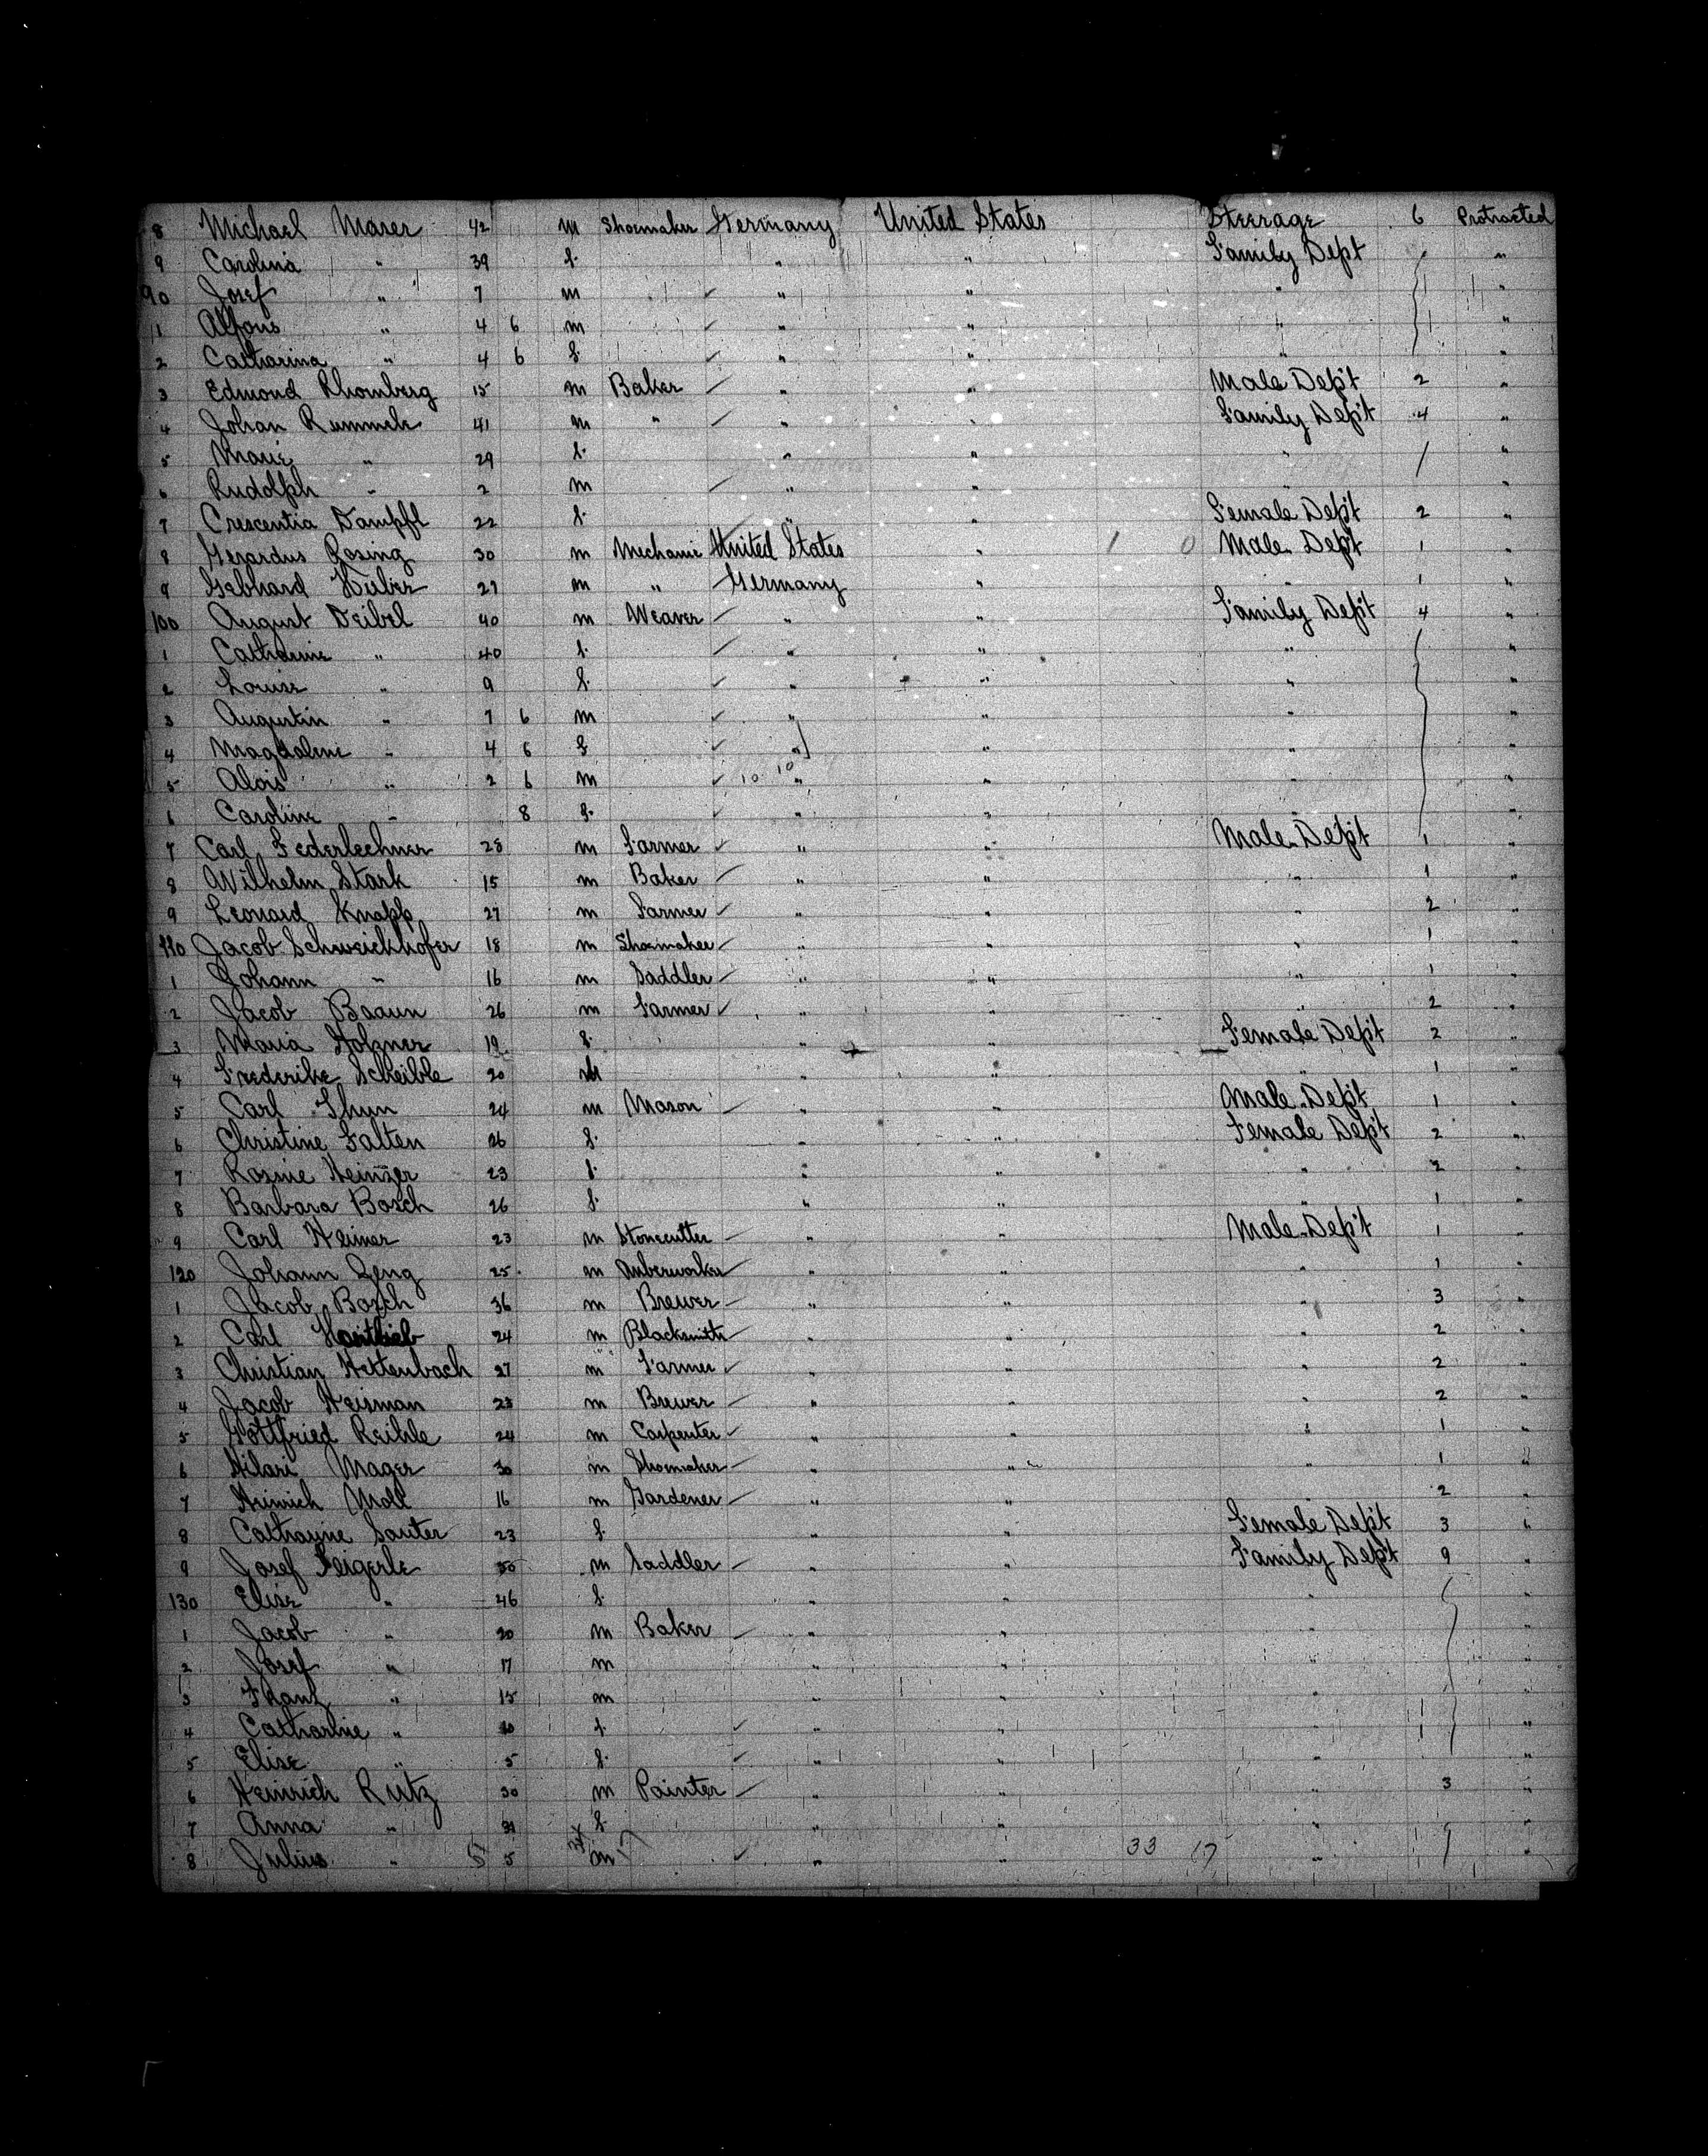 8 Michael Maser 42 m Shoemaker Germany United States Steerage 6 Protracted
9 Carolina " 39 f. " " Family Dept "
90 Josef " 7 m " " " "
1 Alfons " 4 6 m " " " "
2 Catharina " 4 6 f. " " " "
3 Edmond Rhomberg 15 m Baker " " Male Dep't 2 "
4 Johan Rummele 41 m " " " Family Dep't 4 "
5 Marie " 29 f. " " " "
6 Rudolph " 2 m " " "
7 Crescentia Dampfl 22 f. " " Female Dep't 2 "
8 Gerardus Rosing 30 m Mechanic United States " 1 0 Male Dept 1 "
9 Gebhard Huber 27 m " Germany " " 1 "
100 August Deibel 40 m Weaver " " Family Dep't 4 "
1 Catharine " 40 f. " " " "
2 Louise " 9 f. " " " "
3 Augustin " 7 6 m " " " "
4 Magdalene " 4 6 f " " " "
5 Alois " 2 6 m 10 10 " " " "
6 Caroline " 8 f. " " " "
7 Carl Federlechner 28 m Farmer " " Male Dep't 1 "
8 Wilhelm Stark 15 m Baker " " " 1 "
9 Leonard Knapp 27 m Farmer " " " 2 "
110 Jacob Schweickhofer 18 m Shoemaker " " " 1 "
1 Johann " 16 m Saddler " " " 1 "
2 Jacob Braun 26 m Farmer " " " 2 "
3 Maria Holzner 19 f. " " Female Dep't 2 "
4 Frederike Scheible 20 " " " 1 "
5 Carl Thun 24 m Mason " " Male Dept 1 "
6 Christine Falten 26 f. " " Female Dep't 2 "
7 Rosine Heinzer 23 f. " " " 2 "
8 Barbara Bosch 26 f. " " " 1 "
9 Carl Heimer 23 m Stonecutter " " Male Dep't 1 "
120 Johann Zeng 25 m " " " 1 "
1 Jacob Bosch 36 m Brewer " " " 3 "
2 Carl 24 m Blacksmith " " " 2 "
3 Christian Hettenbach 27 m Farmer " " " 2 "
4 Jacob Heisman 23 m Brewer " " " 2 "
5 Gottfried Reihle 24 m Carpenter " " " 1 "
6 Hilari Mager 30 m Shoemaker " " " 1 "
7 Heinrich Moll 16 m Gardener " " " 2 "
8 Catharine Sauter 23 f. " " Female Dept 3 "
9 Josef Feigerle 50 m Saddler " " Family Dep't 9 "
130 Elise " 46 f. " " " "
1 Jacob " 20 m Baker " " " "
2 Josef " 17 m " " " "
3 Franz " 15 m " " " "
4 Catharine " 10 f. " " " "
5 Elise " 5 f. " " " "
6 Heinrich Rutz 30 m Painter " " " 3 "
7 Anna " 31 f. " " " "
8 Julius " 5 5 m " " 33 17 " "